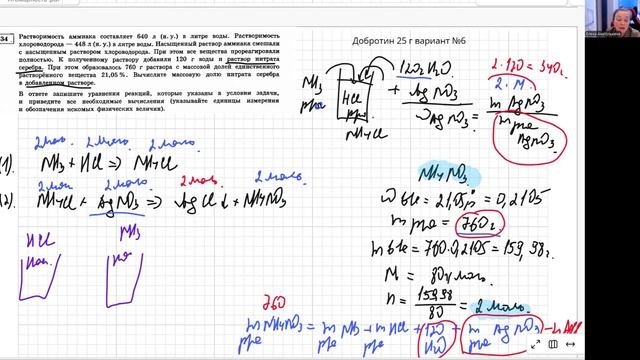 34
Растворимость аммиака составляет 640 л (н. у.) в литре воды. Растворимость
хлороводорода — 448 л (н. у.) в литре воды. Насыщенный раствор аммиака смешали
с насыщенным раствором хлороводорода. При этом все вещества прореагировали
полностью. К полученному раствору добавили 120 г воды и раствор нитрата
серебра. При этом образовалось 760 г раствора с массовой долей единственного
растворённого вещества 21,05 %. Вычислите массовую долю нитрата серебра
в добавленном растворе.
В ответе запишите уравнения реакций, которые указаны в условии задачи,
и приведите все необходимые вычисления (указывайте единицы измерения
и обозначения искомых физических величин).
Добротин 25 г вариант №6
NH3
р-ра
HCl
р-ра
NH4Cl
120г H2O
+ AgNO3
ω AgNO3 =
2·170 = 340г.
2·M
m AgNO3
m р-ра
AgNO3
2 моль 2 моль 2 моль
1). NH3 + HCl ⇒ NH4Cl
2 моль 2 моль 2 моль 2 моль
2). NH4Cl + AgNO3 ⇒ AgCl↓ + NH4NO3
HCl
нас.
NH3
NH4NO3
ω в-ва = 21,05% = 0,2105
m р-ра = 760г.
m в-ва = 760·0,2105 = 159,98г.
M = 80г/моль.
n = 159,98
80
= 2 моль.
760
m NH4NO3 = m NH3 + m HCl + 120 + m AgNO3 - m AgCl
р-ра р-ра р-ра H2O р-ра